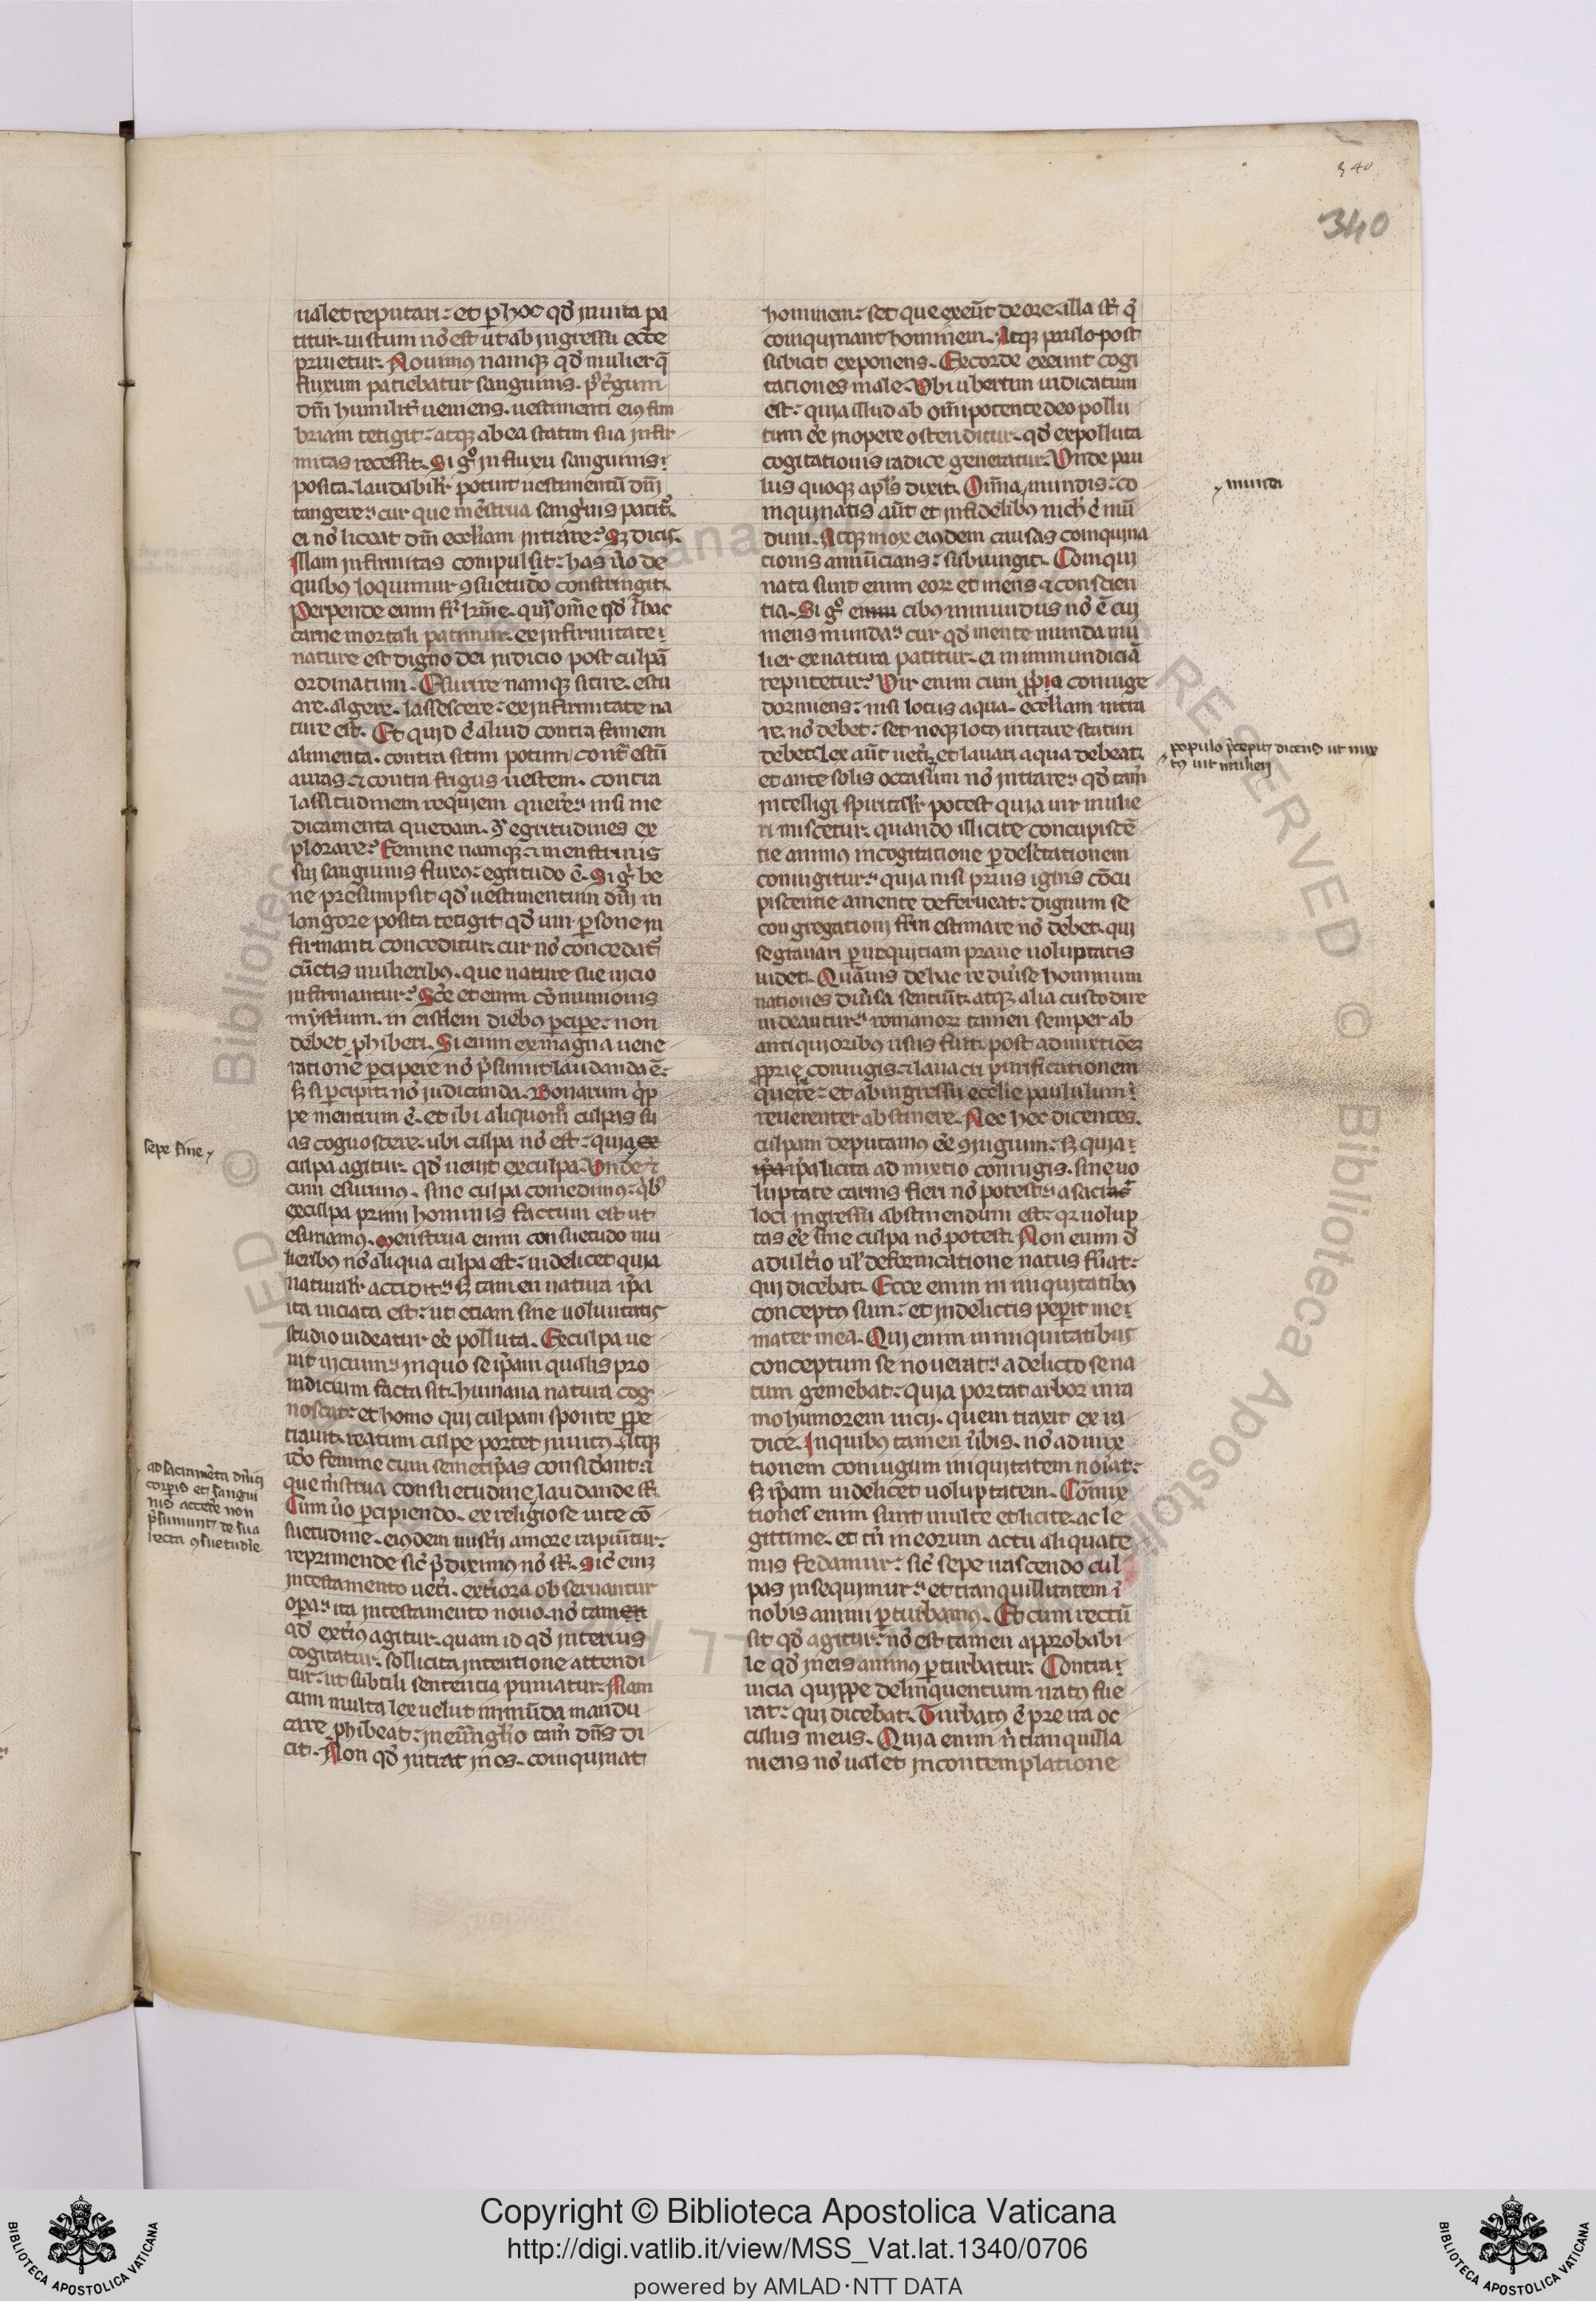 340
340
ualet reputari: et p̱ hoc qđ inuita pa
titur. iustum nō est ut ab ingressu ecc̄e
priuetur. Nouimus namq; qđ mulier q̄
fluxum patiebatur sanguinis. p̄ t̄gum
dn̄i humilit̄ ueniens. uestimenti eiꝰ fim
briam tetigit: atq; ab ea statim sua infir
mitas recessit. Si gͦ in fluxu sanguinis:
posita. laudabilr̄ potuit uestimentū dn̄i
tangere: cur que mēstrua sang̊uis patit̄.
ei nō liceat dn̄i eccl̄iam intrare? Sꝫ dicis.
Illam infirmitas compulsit: has ůo de
quibꝰ loquimur ꝯsuetudo constringit.
Perpende enim fr̄ kr̄me. quꝫ om̄e qđ ī hac
carne mortali patimur. ex infirmitate:
nature est digno dei iudicio post culpā
ordinatum. Esurire namq; sitire. estu
are. algere. lassescere: ex infirmitate na
ture est. Et quid ē aliud contra famem
alimenta. contra sitim potum. cont̄ estū
auras ⁊ contra frigus uestem. contra
lassitudinem requiem querere: nisi me
dicamenta quedam. ꝯ̄ egritudines ex
plorare? Femine namq; ⁊ menstruus
sui sanguinis fluxꝰ: egritudo ē. Si gͦ be
ne presumpsit qđ uestimentum dn̄i in
langore posita tetigit qđ uni p̱sone in
firmanti conceditur: cur nō concedat̄
cūctis mulieribꝰ. que nature sue uicio
infirmantur? Sc̄e et enim cōmunionis
myst̄ium. in eisdem diebꝰ p̱cipe: non
debet ꝓhiberi. Si enim ex magna uene
ratione p̱cipere nō p̄sumit laudanda ē:
sꝫ si p̱cipit: nō iudicanda. Bonarum q̊p
pe mentium ē. et ibi aliquom̊ culpas su
as cognoscere. ubi culpa nō est: quia ex
sepe sine
culpa agitur. qđ uenit ex culpa. Unde ⁊
cum esurimꝰ. sine culpa comedimꝰ: q̊bꝰ
ex culpa primi hominis factum est ut
esuriamꝰ. Menstrua enim consuetudo mu
lieribꝰ nō aliqua culpa est: uidelicet quia
naturalr̄ accidit: sꝫ tamen natura ip̄a
ita uiciata est: ut etiam sine uoluntatis
studio uideatur eē polluta. Ex culpa ue
nit uicium: in quo se ip̄am qualis pro
iudicium facta sit. humana natura cog
noscat: et homo qui culpam sponte ꝑpe
trauit. reatum culpe portet inuitꝰ. Atq;
iđo femine cum semetip̄as considant: ⁊ ī
ad sacramēta dn̄ici
corp̱is et sangui
nis accede non
p̄sumunt. de sua
recta ꝯsuetudīe
que mēstrua consuetudine, laudande st̄.
Cum ůo p̱cipiendo. ex religiose uite cō
suetudine. eiꝰdem mist̄ii amore rapiūtur:
reprimende sic̄ p̄diximꝰ nō st̄. Sic̄ eniꝫ
in testamento ueti. ext̄iora obseruantur
opa: ita in testamento nouo. nō tamen
qđ ext̄iꝰ agitur. quam id qđ interius
cogitatur. sollicita intentione attendi
tur. ut subtili sententia puniatur. Nam
cum multa lex uelut immūda mandu
care ꝓhibeat: in euā̄glio tam̄ dn̄s di
cit. Non qđ intrat in os. coinquinat
hominem: set que exeūt de ore. illa st̄ q̄
coinquinant hominem. Atq; paulo post
subicit exponens. Ex corde exeunt cogi
tationes male. Ubi ubertim iudicatum
est: quia illud ab om̄ipotente deo pollu
tum eē in opere ostenditur. qđ ex polluta
cogitationis radice generatur. Unde pau
lus quoq; apl̄s dixit. Om̄ia mundis: co
munda
inquinatis aūt et infidelibꝰ nich̄ ē mū
dum. Atq; mox eiꝰdem causas coinquina
tionis annūcians: subiungit. Coinqui
nata sunt enim eoꝝ et mens ⁊ conscien
tia. Si gͦ enim cibꝰ inmundus nō ē cui
mens munda: cur qđ mente munda mu
lier ex natura patitur. ei in inmundiciā
reputetur? Uir enim cum ꝓpria coniuge
dormiens: nisi lotus aqua. eccl̄iam intra
re. nō debet: set neq; lotꝰ intrare statim
debet. Lex aūt uet̄i et lauari aqua debeat.
populo p̄cepit. dicens ut mix
tꝰ uir mulieri
et ante solis occasum nō intrare: qđ tam̄
intelligi spiritalr̄ potest quia uir mulie
ri miscetur. quando illicite concupiscē
tie animꝰ in cogitatione p̱ delectationem
coniugitur: quia nisi prius ignis cōcu
piscentie a mente deferueat: dignum se
congregationi frm̄ estimare nō debet. qui
se grauari p̱ nequitiam praue uoluptatis
uidet. Quāuis de hac re diūse hominum
nationes diūsa sentiūt. atq; alia custodire
uideantur: romanoꝝ tamen semper ab
antiquioribꝰ usus fuit. post admixtiōeꝫ
ꝓprie coniugis. ⁊ lauacri purificationem
querere: et ab ingressu ecclie paululum:
reuerenter abstinere. Nec hec dicentes.
culpam deputamꝰ eē ꝯiugium: sꝫ quia:
ip̄a ip̄a licita admixtio coniugis. sine uo
luptate carnis fieri nō potest: a sacri
loci ingressu abstinendum est: qꝛ uolup
tas eē sine culpa nō potest. Non enim đ
adult̄io ul̄ de fornicatione natus fūat:
qui dicebat. Ecce enim in iniquitatibꝰ
conceptꝰ sum: et in delictis pep̱it me:
mater mea. Qui enim in iniquitatibus
conceptum se nouerat: a delicto se na
tum gemebat: quia portat arbor in ra
mo humorem uicii. quem traxit ex ra
dice. In quibꝰ tamen ūbis. nō admix
tionem coniugum iniquitatem noīat:
sꝫ ip̄am uidelicet uoluptatem. Cōmix
tiones enim sunt multe et licite. ac le
gittime. et tn̄ in eorum actu aliquate
nus fedamur: sic̄ sepe nascendo cul
pas insequimur: et tranquillitatem ī
nobis animi p̱turbamꝰ. Et cum rectū
sit qđ agitur: nō est tamen approbabi
le qđ in eis animꝰ p̱turbatur. Contra:
uicia quippe delinquentium natꝰ fue
rat: qui dicebat. Turbatꝰ ē pre ira oc
culus meus. Quia enim n̄ tranquilla
mens nō ualet in contemplatione
Copyright © Biblioteca Apostolica Vaticana
http://digi.vatlib.it/view/MSS_Vat.lat.1340/0706
powered by AMLAD·NTT DATA
BIBLIOTECA APOSTOLICA VATICANA
BIBLIOTECA APOSTOLICA VATICANA